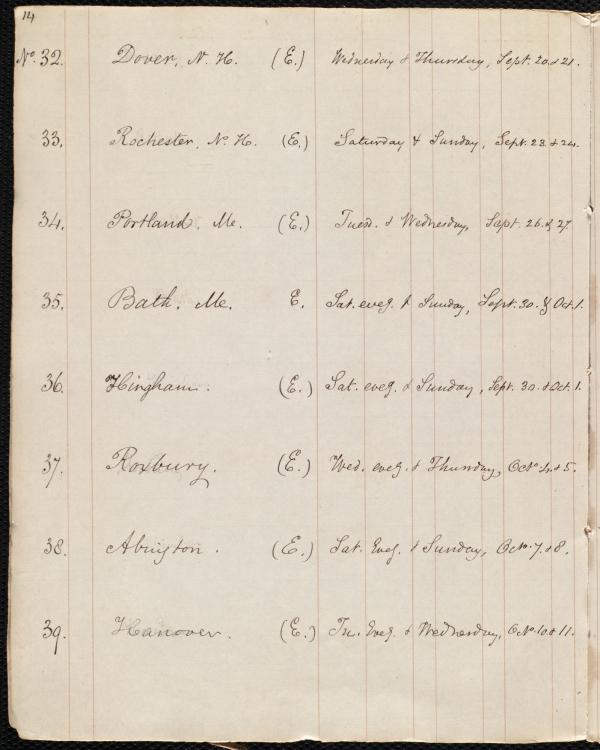 14
No. 32. Dover, N. H. (E.) Wednesday & Thursday, Sept. 20 & 21.
33. Rochester, N. H. (E.) Saturday & Sunday, Sept. 23 & 24.
34. Portland, Me. (E.) Tuesd. & Wednesday, Sept. 26 & 27
35. Bath, Me. E. Sat. eveg. & Sunday, Sept. 30. & Oct. 1.
36. Hingham. (E.) Sat. eveg. & Sunday, Sept. 30. & Oct. 1.
37. Roxbury. (E.) Wed. eveg. & Thursday, Oct. 4. & 5.
38. Abington. (E.) Sat. Eveg. & Sunday, Oct. 7. & 8.
39. Hanover. (E.) Tu. Eveg. & Wednesday, Oct. 10 & 11.